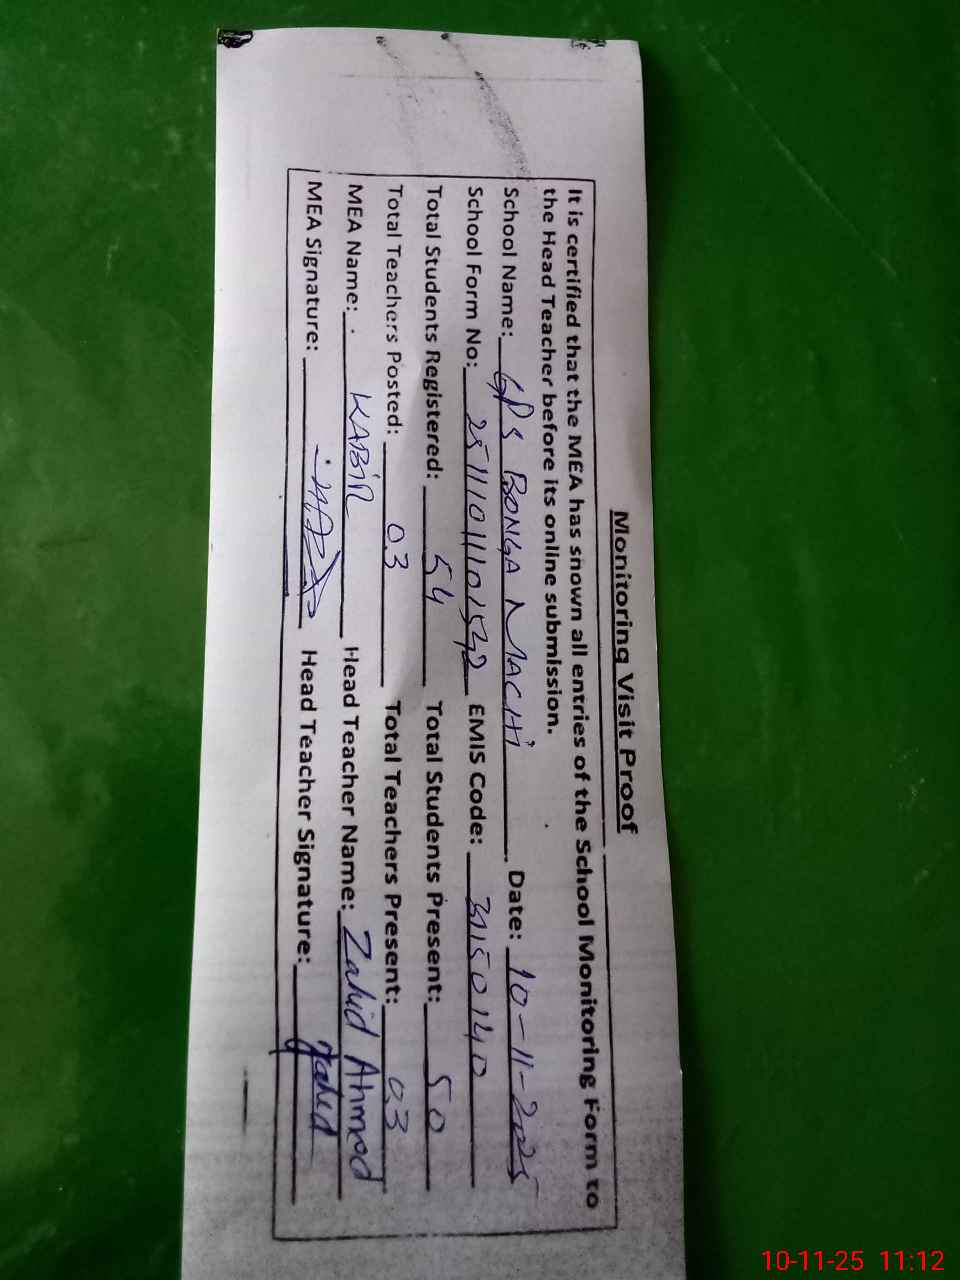 Monitoring Visit Proof
It is certified that the MEA has shown all entries of the School Monitoring Form to
the Head Teacher before its online submission.
School Name: GPS BONGA MACHI Date: 10-11-2025
School Form No: 2511101101542 EMIS Code: 31150140
Total Students Registered: 54 Total Students Present: 50
Total Teachers Posted: 03 Total Teachers Present: 03
MEA Name: KABIR Head Teacher Name: Zahid Ahmed
MEA Signature: Head Teacher Signature: Zahid
10-11-25 11:12